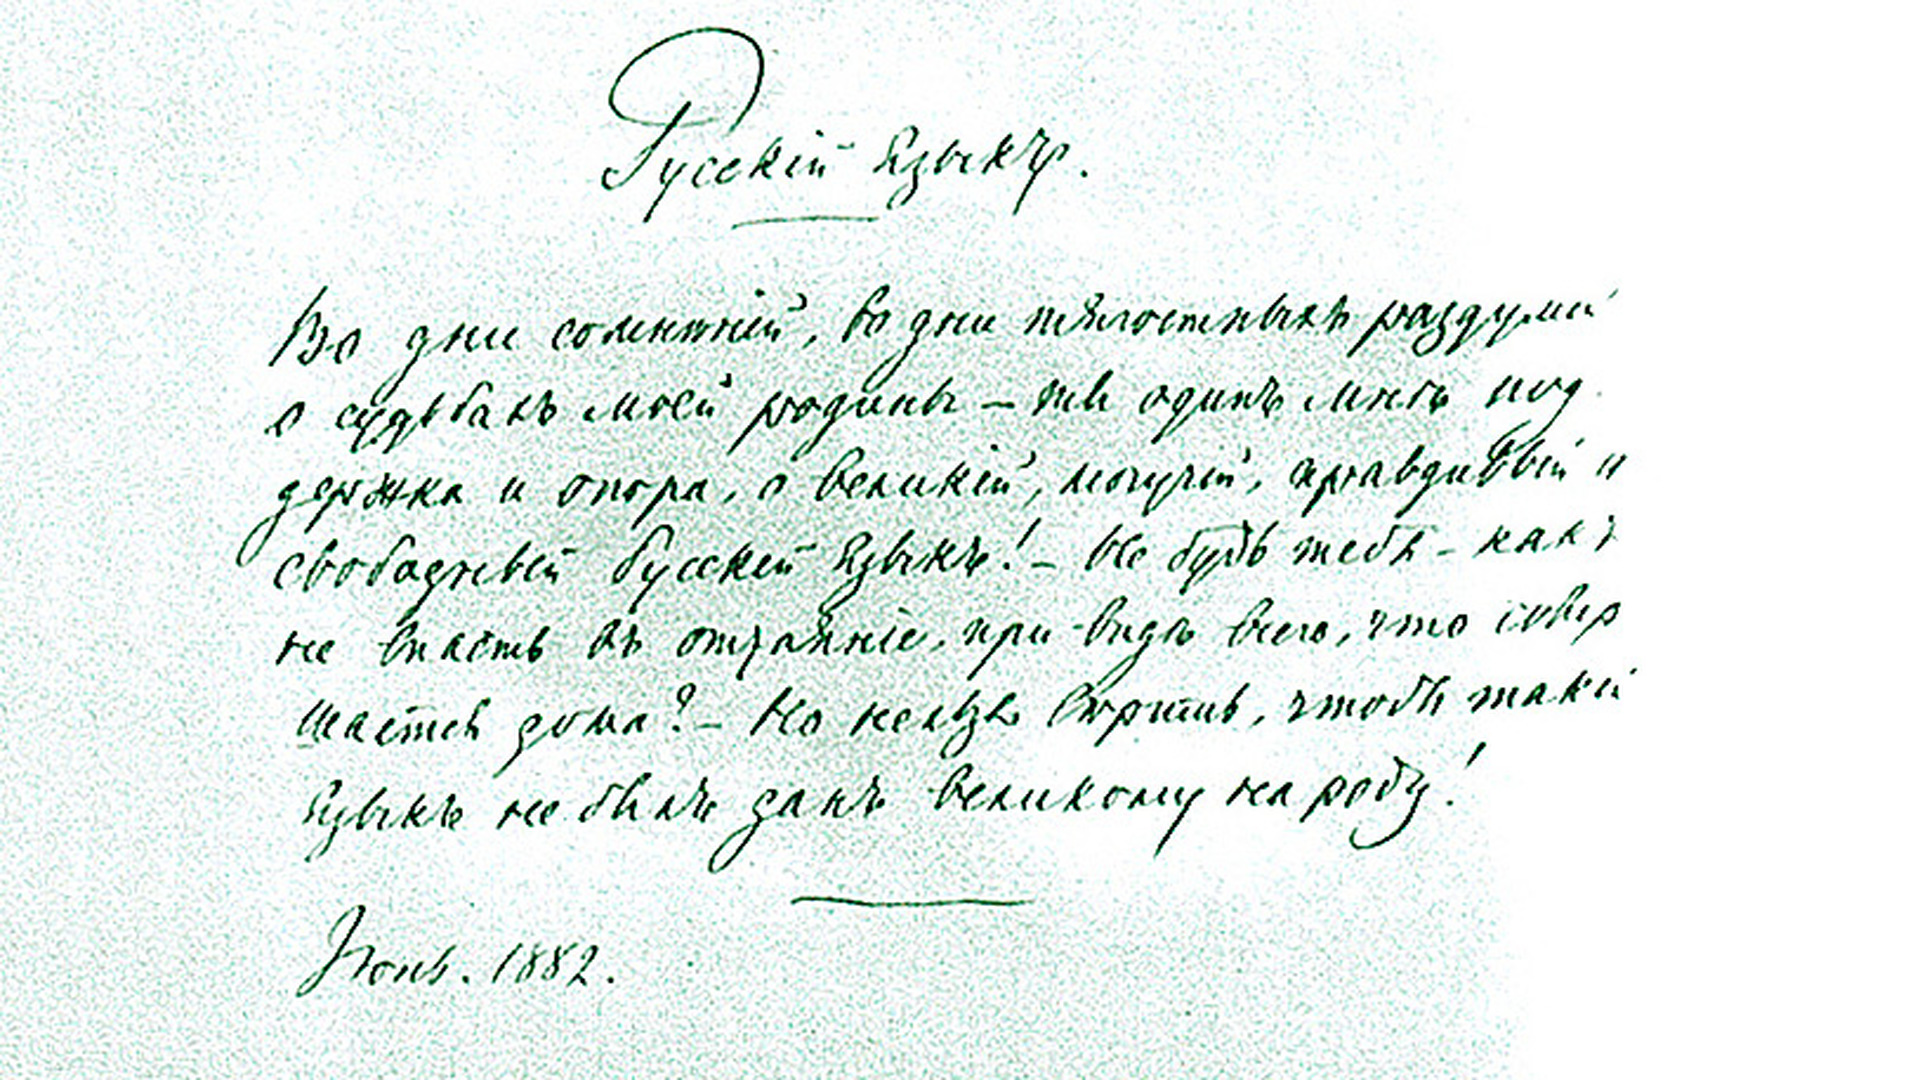 Русскій языкъ.
Во дни сомнѣній, во дни тягостныхъ раздумій
о судьбахъ моей родины – ты одинъ мнѣ под
держка и опора, о великій, могучій, правдивый и
свободный русскій языкъ! – Не будь тебя – какъ
не впасть въ отчаяніе, при видѣ всего, что совер
шается дома? – Но нельзя вѣрить, чтобы такой
языкъ не былъ данъ великому народу!
Іюнь. 1882.